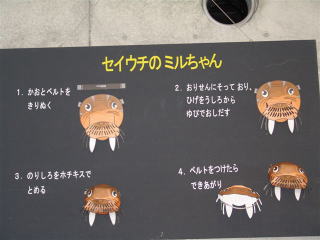 セイウチのミルちゃん
1. かおとベルトを
きりぬく
2. おりせんにそって おり、
ひげをうしろから
ゆびでおしだす
3. のりしろをホチキスで
とめる
4. ベルトをつけたら
できあがり